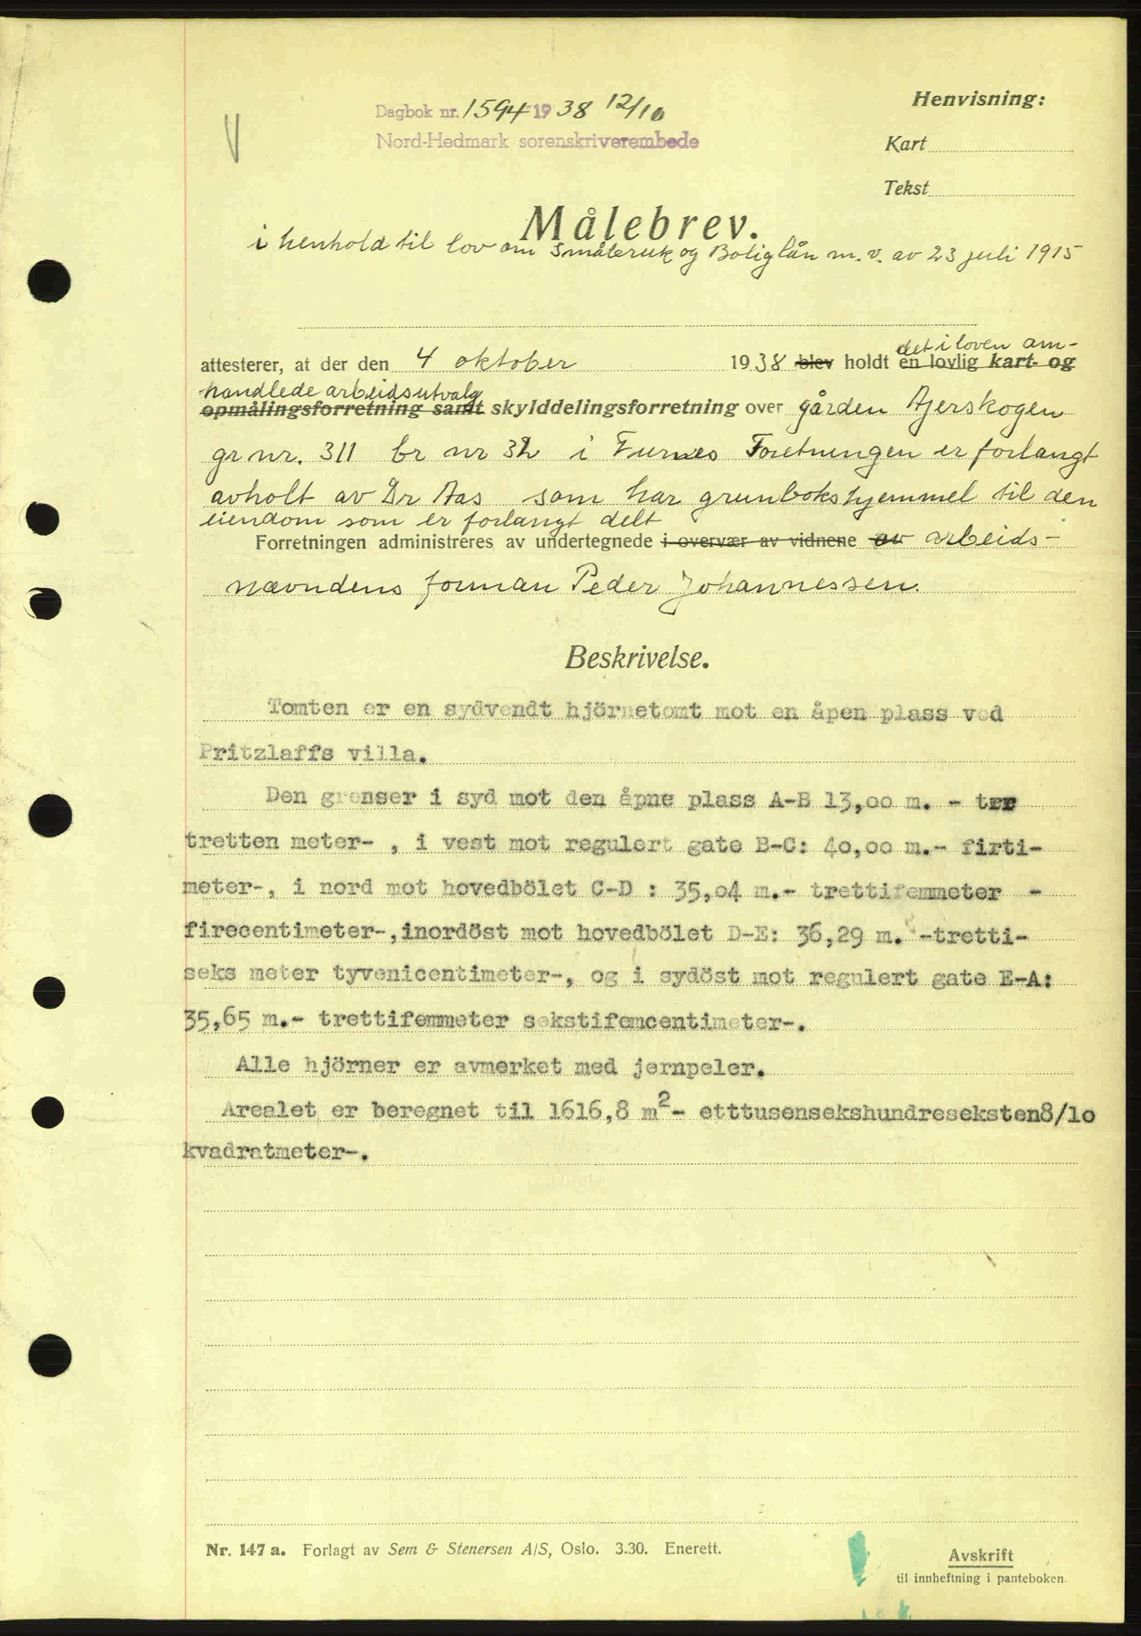 Henvisning:
Dagbok nr. 1594-1938 12/10
Nord-Hedmark sorenskriverembede
Kart
Tekst
Målebrev.
i henhold til lov om Småbruk og Boliglån m. v. av 23 juli 1915
attesterer, at der den 4 oktober 1938 blev holdt en lovlig kart- og
det i loven om-
handlede arbeidsutvalg
opmålingsforretning samt skylddelingsforretning over gården Ajerskogen
gr nr. 311 br nr 32 i Furnes Foretningen er forlangt
avholt av Dr Aas som har grunbokshjemmel til den
eiendom som er forlangt delt
Forretningen administreres av undertegnede i overvær av vidnene av arbeids-
nævndens forman Peder Johannessen.
Beskrivelse.
Tomten er en sydvendt hjörnetomt mot en åpen plass ved
Pritzlaffs villa.
Den grenser i syd mot den åpne plass A-B 13,00 m. - trr
tretten meter- , i vest mot regulert gate B-C: 40,00 m.- firti-
meter-, i nord mot hovedbölet C-D : 35,04 m.- trettifemmeter -
firecentimeter-,inordöst mot hovedbölet D-E: 36,29 m. -tretti-
seks meter tyvenicentimeter-, og i sydöst mot regulert gate E-A:
35,65 m.- trettifemmeter sekstifemcentimeter-.
Alle hjörner er avmerket med jernpeler.
Arealet er beregnet til 1616,8 m2- etttusensekshundreseksten8/10
kvadratmeter-.
Nr. 147 a. Forlagt av Sem & Stenersen A/S, Oslo. 3.30. Enerett.
Avskrift
til innheftning i panteboken.